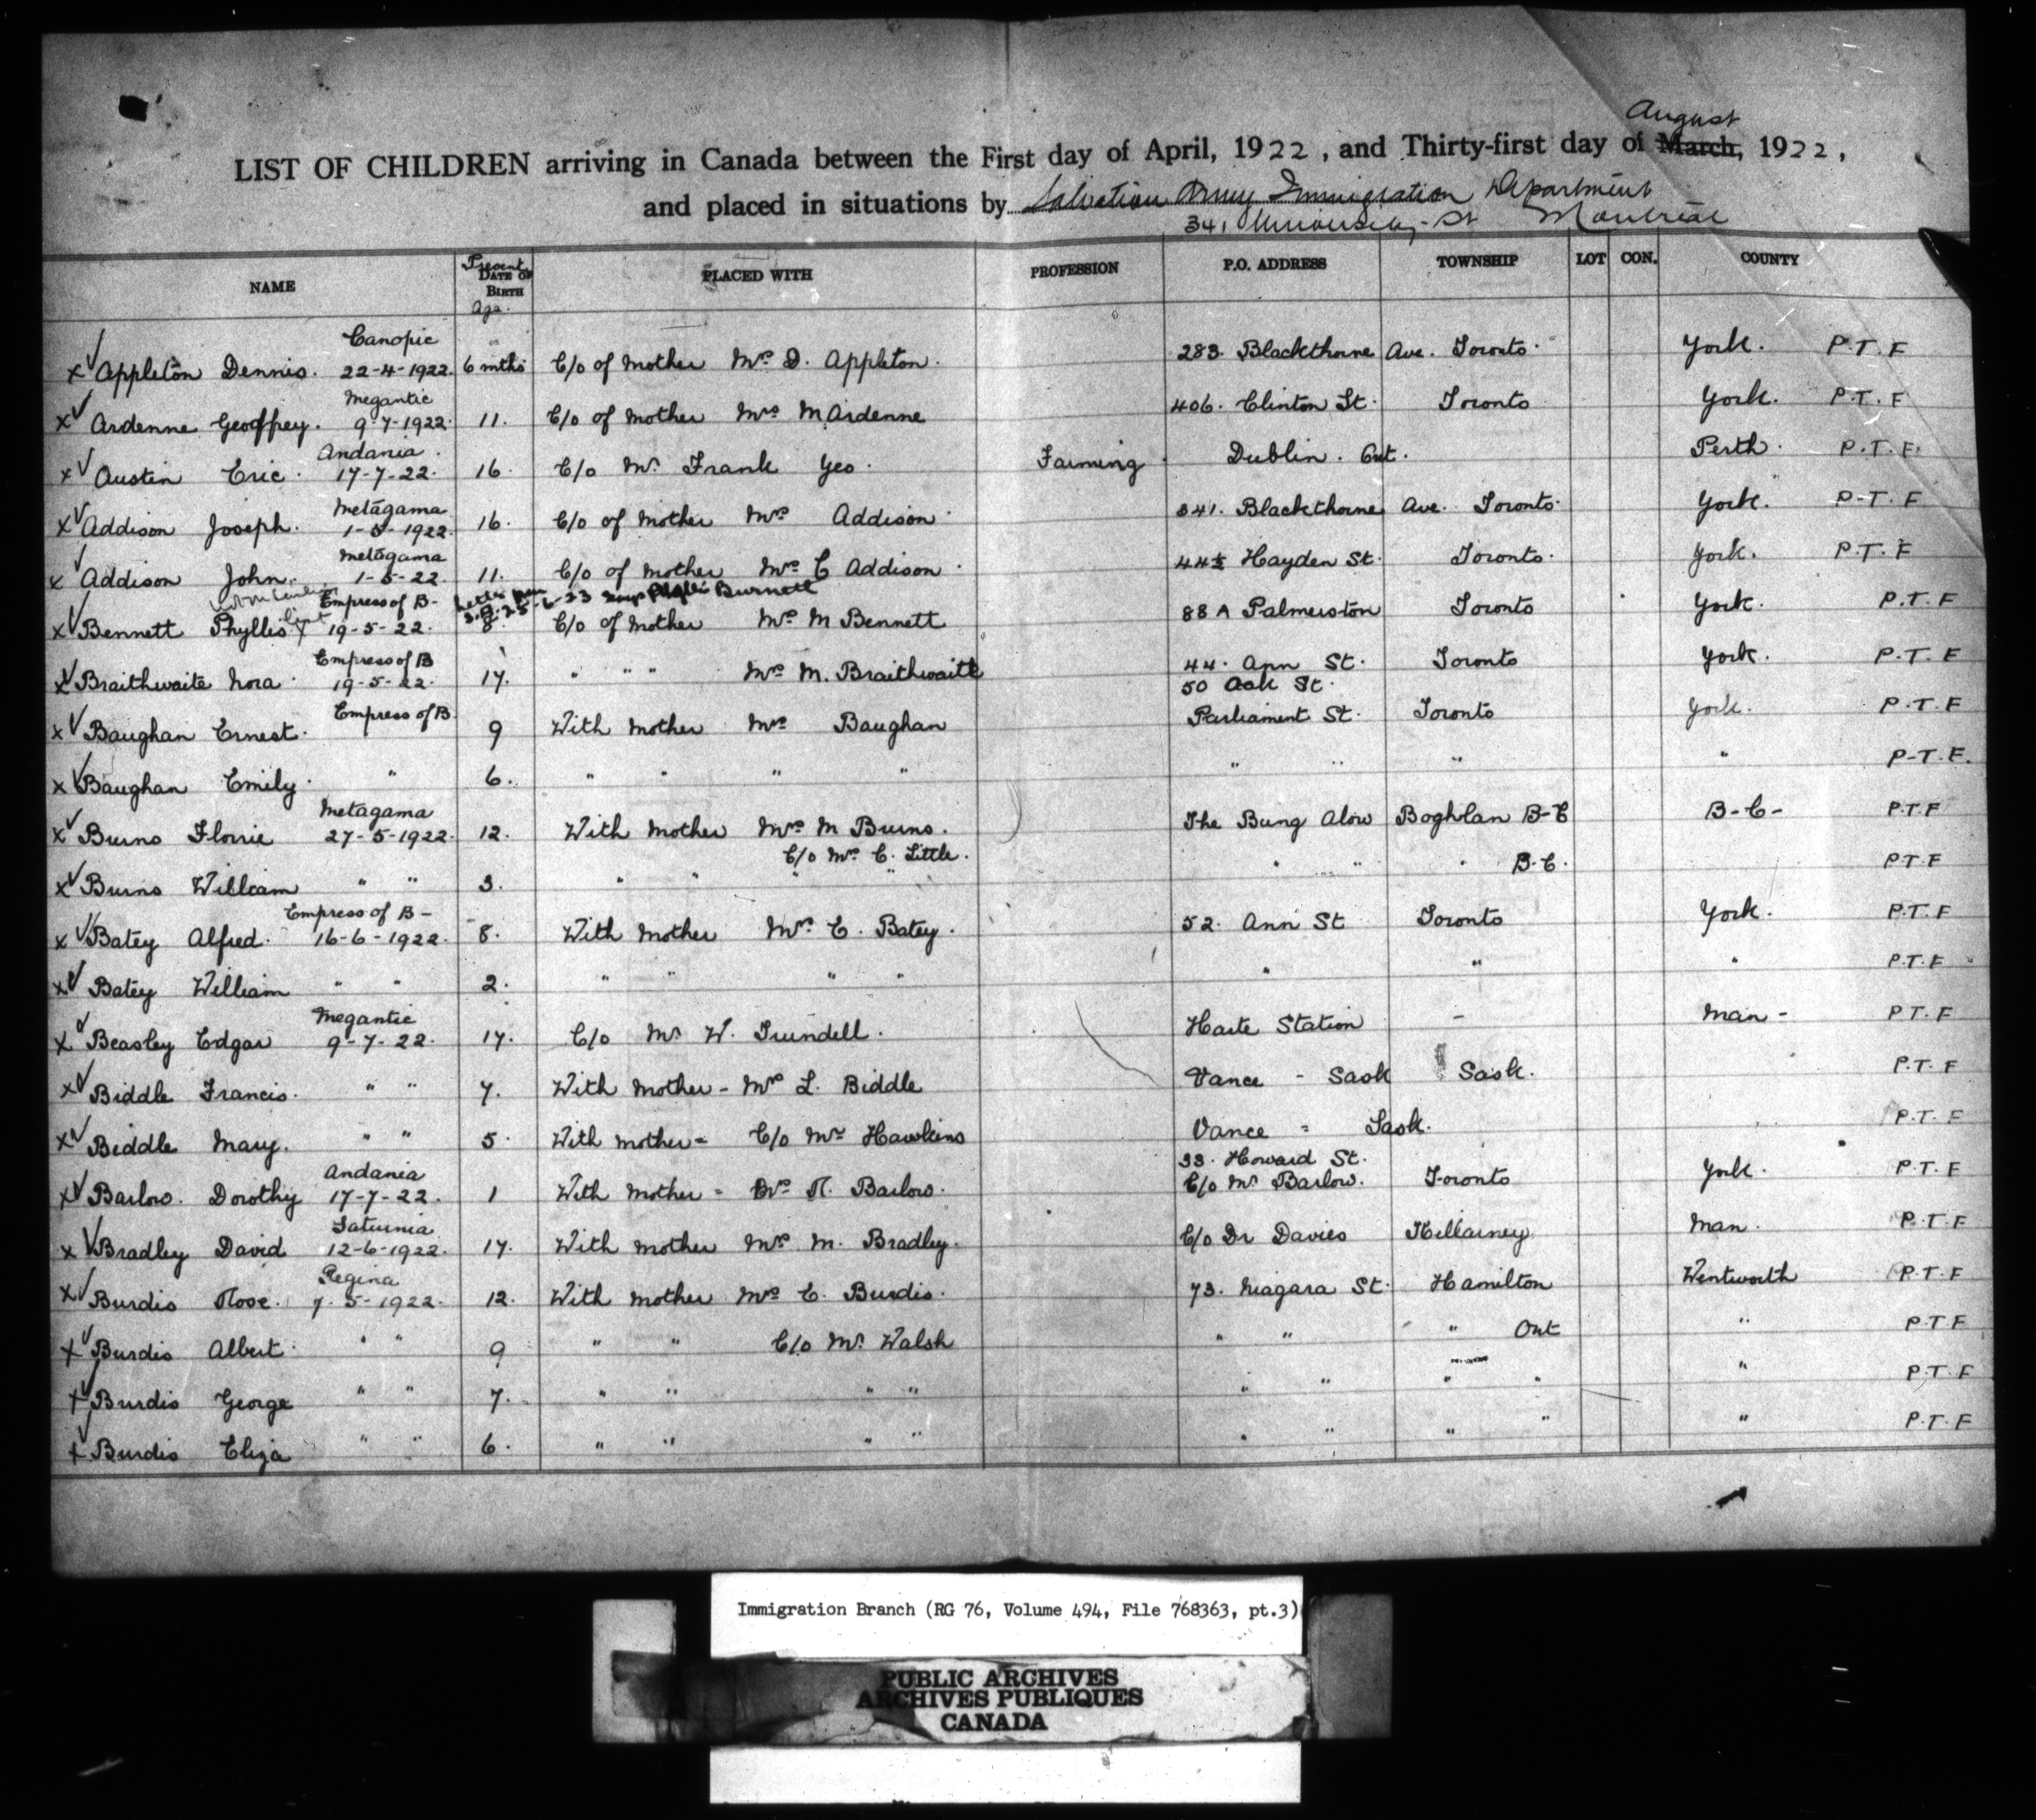 August
LIST OF CHILDREN arriving in Canada between the First day of April, 1922, and Thirty-first day of March, 1922,
and placed in situations by Salvation Army Immigration Department
341 University St Montreal
NAME Present DATE OF BIRTH Age. PLACED WITH PROFESSION P.O. ADDRESS TOWNSHIP LOT CON. COUNTY
Canopic
x✓ Appleton Dennis. 22-4-1922. 6 mths C/o of Mother Mrs D. Appleton. 283. Blackthorne Ave. Toronto. York. P.T.F
Megantic
x✓ Ardenne Geoffrey. 9-7-1922. 11. C/o of Mother Mrs M Ardenne 406. Clinton St. Toronto York. P.T.F
Andania.
x✓ Austin Eric. 17-7-22. 16. C/o Mr. Frank Yeo. Farming Dublin. Ont. Perth. P.T.F.
Metagama
x✓ Addison Joseph. 1-5-1922. 16. C/o of Mother Mrs Addison. 341. Blackthorne Ave. Toronto. York. P-T.F
Metagama
x✓ Addison John. 1-5-22. 11. C/o of Mother Mrs C Addison. Hayden St. Toronto. York. P.T.F
Empress of B- Letter from S.A. 25-6-23 says Phyllis Burnett
x✓ Bennett Phyllis 19-5-22. 8. C/o of Mother Mrs M Bennett 88 A Palmerston Toronto York. P.T.F
Empress of B
x✓ Braithwaite Nora. 19-5-22. 17. " " " Mrs M. Braithwaite 44. Ann St. Toronto York. P.T.F
Empress of B 50 Oak St.
x✓ Baughan Ernest. 9 With Mother Mrs Baughan Parliament St. Toronto York. P.T.F
x✓ Baughan Emily. " 6. " " " " " " " " P-T.F.
Metagama
x✓ Burns Florrie 27-5-1922. 12. With Mother Mrs M Burns. The Bung Alow Boghlan B-C B-C- P.T.F
C/o Mrs C. Little.
x✓ Burns William " " 3. " " " " " " " B-C. P.T.F
Empress of B-
x✓ Batey Alfred. 16-6-1922. 8. With Mother Mrs C. Batey. 52. Ann St Toronto York. P.T.F
x✓ Batey William " " 2. " " " " " " " P.T.F
Megantic
x✓ Beasley Edgar 9-7-22. 17. C/o Mr W. Trundell. Harte Station - Man- P.T.F
x✓ Biddle Francis. " " 7. With Mother - Mrs L. Biddle Vance - Sask Sask. P.T.F
x✓ Biddle Mary. " " 5. With Mother - C/o Mr Hawkins Vance = Sask. P.T.F
Andania 33. Howard St.
x✓ Barlow. Dorothy 17-7-22. 1 With Mother - Mrs R. Barlow. C/o Mr Barlow. Toronto York. P.T.F
Saturnia
x✓ Bradley David 12-6-1922. 17. With Mother Mrs M. Bradley. C/o Dr Davies Killarney Man. P.T.F
Regina
x✓ Burdis Rose. 7.5-1922. 12. With Mother Mrs C. Burdis. 73. Niagara St. Hamilton Wentworth P.T.F
x✓ Burdis Albert. " " 9 " " C/o Mr. Walsh " " " Ont " P.T.F
x✓ Burdis George " " 7. " " " " " " " " " P.T.F
x✓ Burdis Eliza " " 6. " " " " " " " " " P.T.F
Immigration Branch (RG 76, Volume 494, File 768363, pt.3)
PUBLIC ARCHIVES
ARCHIVES PUBLIQUES
CANADA